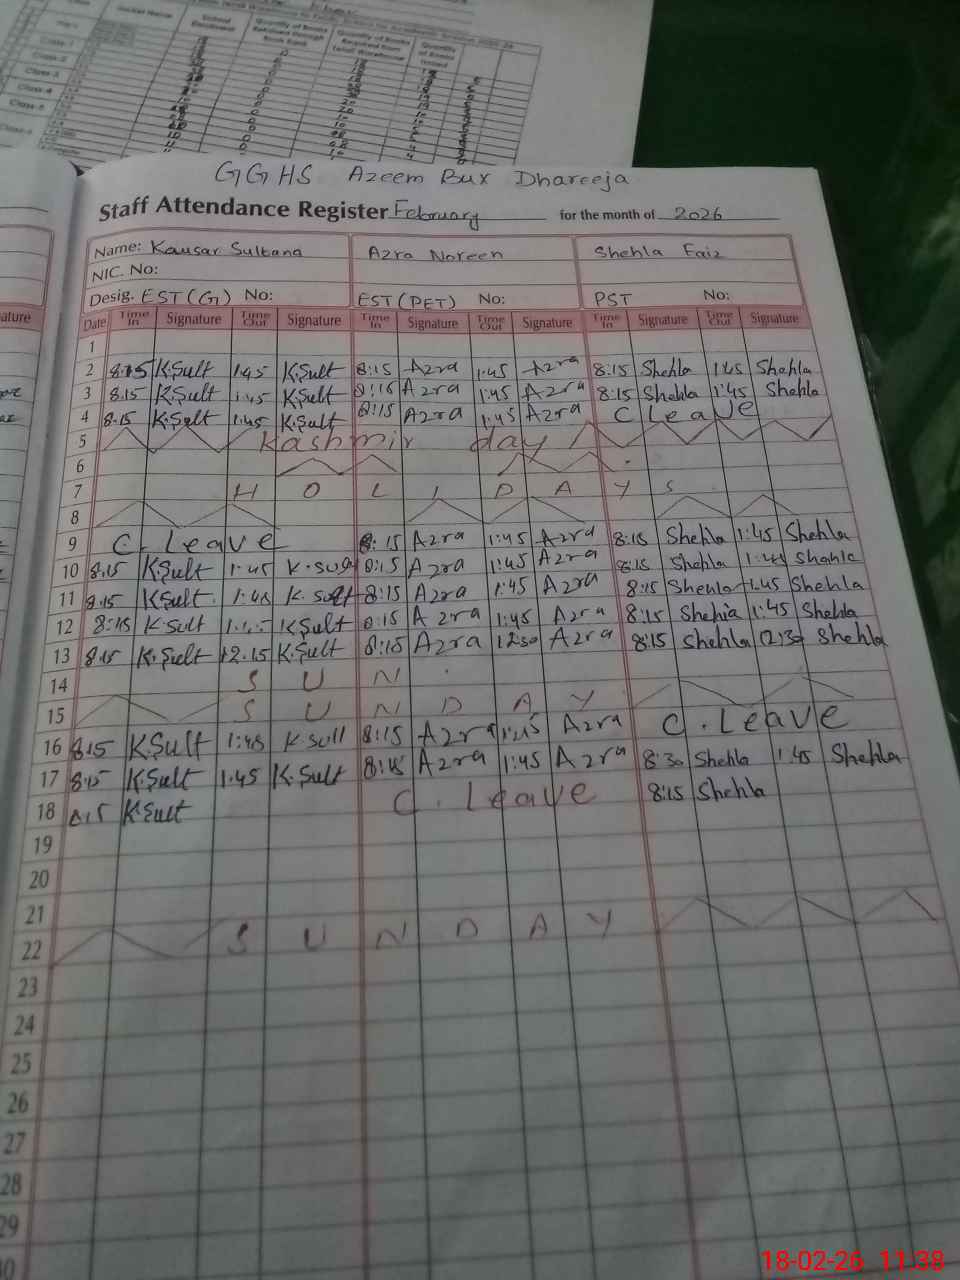 School Enrollment
Quantity of Books Required from Tehsil Warehouse
Class-2
Class-3
Class-4
Class-5
GGHS Azeem Bux Dhareeja
Staff Attendance Register February for the month of 2026
Name: Kausar Sultana Azra Noreen Shehla Faiz
NIC. No:
Desig. EST (G) No: EST (PET) No: PST No:
Date Time In Signature Time Out Signature Time In Signature Time Out Signature Time In Signature Time Out Signature
1
2 8:15 K.Sult 1:45 K.Sult 8:15 Azra 1:45 Azra 8:15 Shehla 1:45 Shehla
3 8:15 K.Sult 1:45 K.Sult 8:16 Azra 1:45 Azra 8:15 Shehla 1:45 Shehla
4 8:15 K.Sult 1:45 K.Sult 8:15 Azra 1:45 Azra C Leave
5 Kashmir day
6
7 H O L I D A Y S
8
9 C. Leave 8:15 Azra 1:45 Azra 8:15 Shehla 1:45 Shehla
10 8:15 K.Sult 1:45 8:15 Azra 1:45 Azra 8:15 Shehla
11 8:15 K.Sult. 1:45 K.Sult 8:15 Azra 1:45 Azra 8:15 Shehla 1:45 Shehla
12 8:15 K.Sult K.Sult 8:15 Azra 1:45 Azra 8:15 Shehla 1:45 Shehla
13 8:15 K.Sult 12:15 K.Sult 8:15 Azra 1230 Azra 8:15 Shehla 12:30 Shehla
14 S U N
15 S U N D A Y
16 8:15 K.Sult 1:45 K.Sult 8:15 Azra Azra C. Leave
17 8:15 K.Sult 1:45 K.Sult 8:15 Azra 1:45 Azra 8:30 Shehla 1:45 Shehla
18 8:15 K.Sult C. Leave 8:15 Shehla
19
20
21
22 S U N D A Y
23
24
25
26
27
28
29
18-02-26 11:38